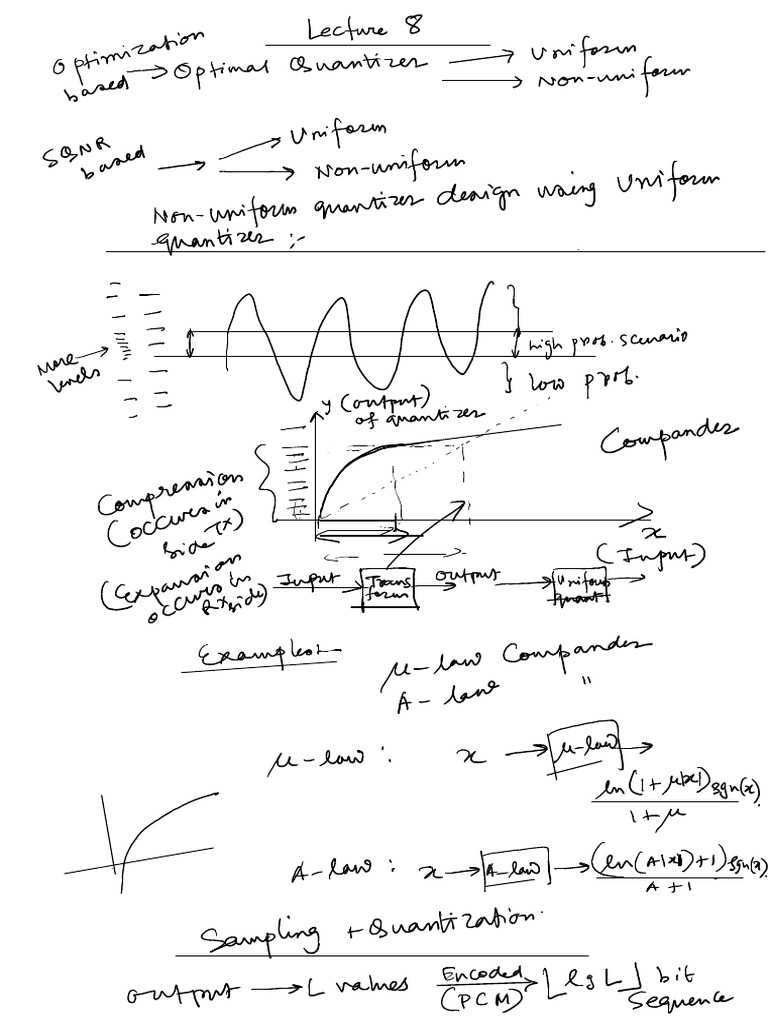 Lecture 8
Optimization based → Optimal Quantizer → Uniform
→ Non-uniform
SQNR based → Uniform
→ Non-uniform
Non-uniform quantizer design using Uniform
quantizer :-
More levels
high prob. scenario
low prob.
y (output)
of quantizer
Compander
Compression
(occurs in
Tx side)
(Expansion
occurs in
Rx side)
x
(Input)
Input → Transform → Output → Uniform quant →
Examples:-
μ-law Compander
A-law "
μ-law : x → μ-law →
ln(1+μ|x|) sgn(x)
1+μ
A-law : x → A-law → (ln(A|x|)+1) sgn(x)
A+1
Sampling + Quantization.
Output → L values Encoded (PCM) → ⌊lg L⌋ bit
sequence